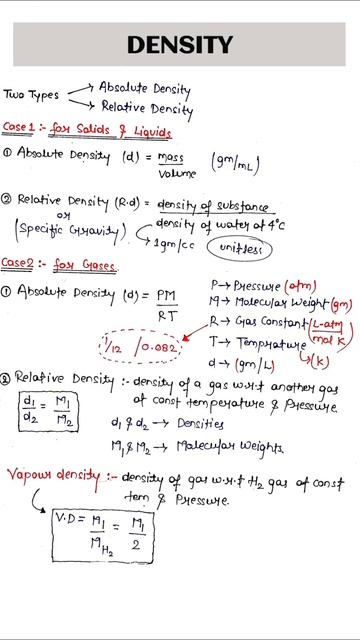 DENSITY
Two Types → Absolute Density
→ Relative Density
Case 1 :- for Solids & Liquids
① Absolute Density (d) = mass/volume (gm/mL)
② Relative Density (R.d) = density of substance/density of water at 4°C
or
(Specific Gravity) → 1gm/cc unitless
Case2 :- for Gases.
① Absolute Density (d) = PM/RT
1/12 / 0.082
P → Pressure (atm)
M → Molecular Weight (gm)
R → Gas Constant (L-atm/mol K)
T → Temprature → (K)
d → (gm/L)
② Relative Density :- density of a gas w.r.t another gas
at const temperature & Pressure.
d₁/d₂ = M₁/M₂
d₁ & d₂ → Densities
M₁ & M₂ → Molecular Weights.
Vapour density :- density of gas w.r.t H₂ gas at const
tem & Pressure.
V.D = M₁/M_H₂ = M₁/2